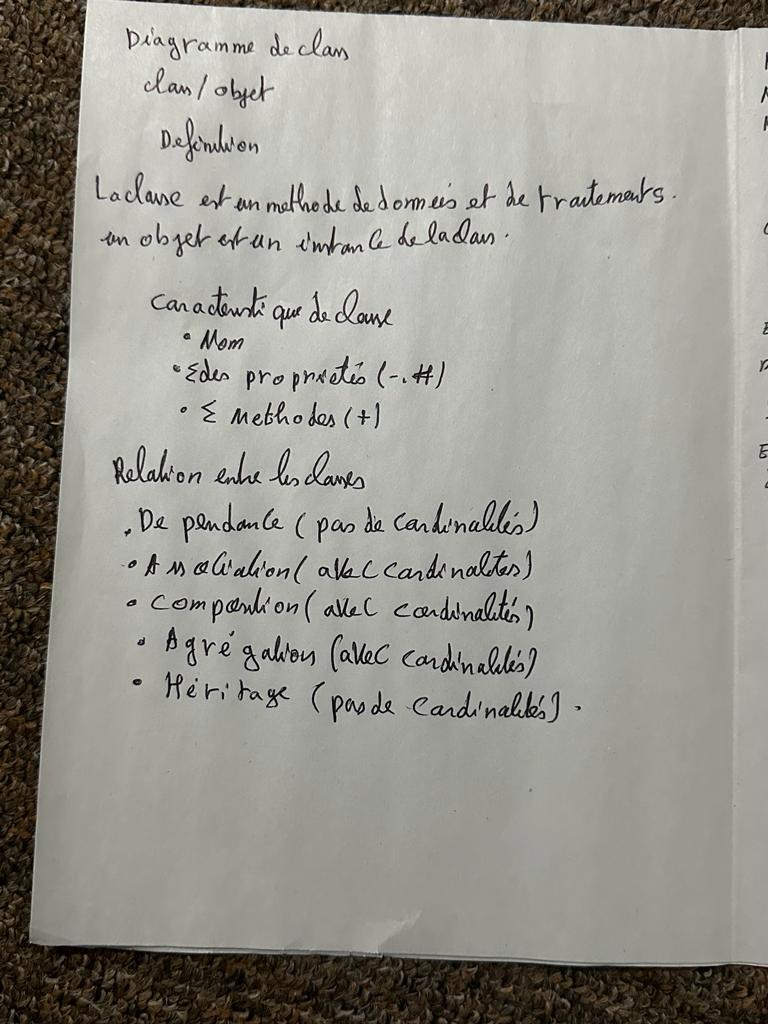 Diagramme de class
class / objet
Definition
La classe est un methode de données et de traitements.
un objet est un instance de la class.
Caracteristique de classe
• Nom
• Σ des propriétés (-, #)
• Σ Methodes (+)
Relation entre les classes
. De pendance ( pas de cardinalités)
• Association ( avec cardinalités)
• Composition ( avec cardinalités)
• Agrégation (avec cardinalités)
• Héritage (pas de cardinalités).